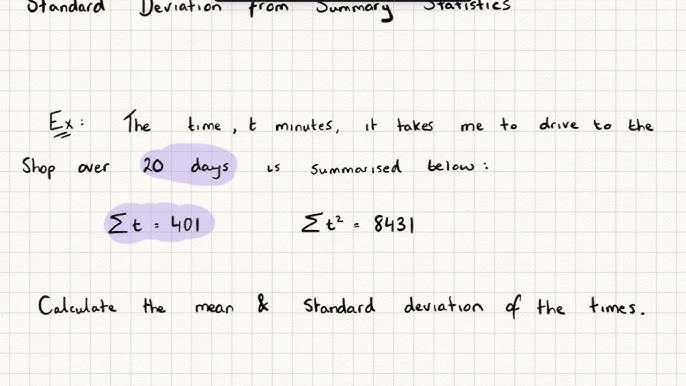 Standard Deviation from Summary Statistics
Ex: The time, t minutes, it takes me to drive to the
Shop over 20 days is summarised below:
∑t = 401 ∑t² = 8431
Calculate the mean & Standard deviation of the times.